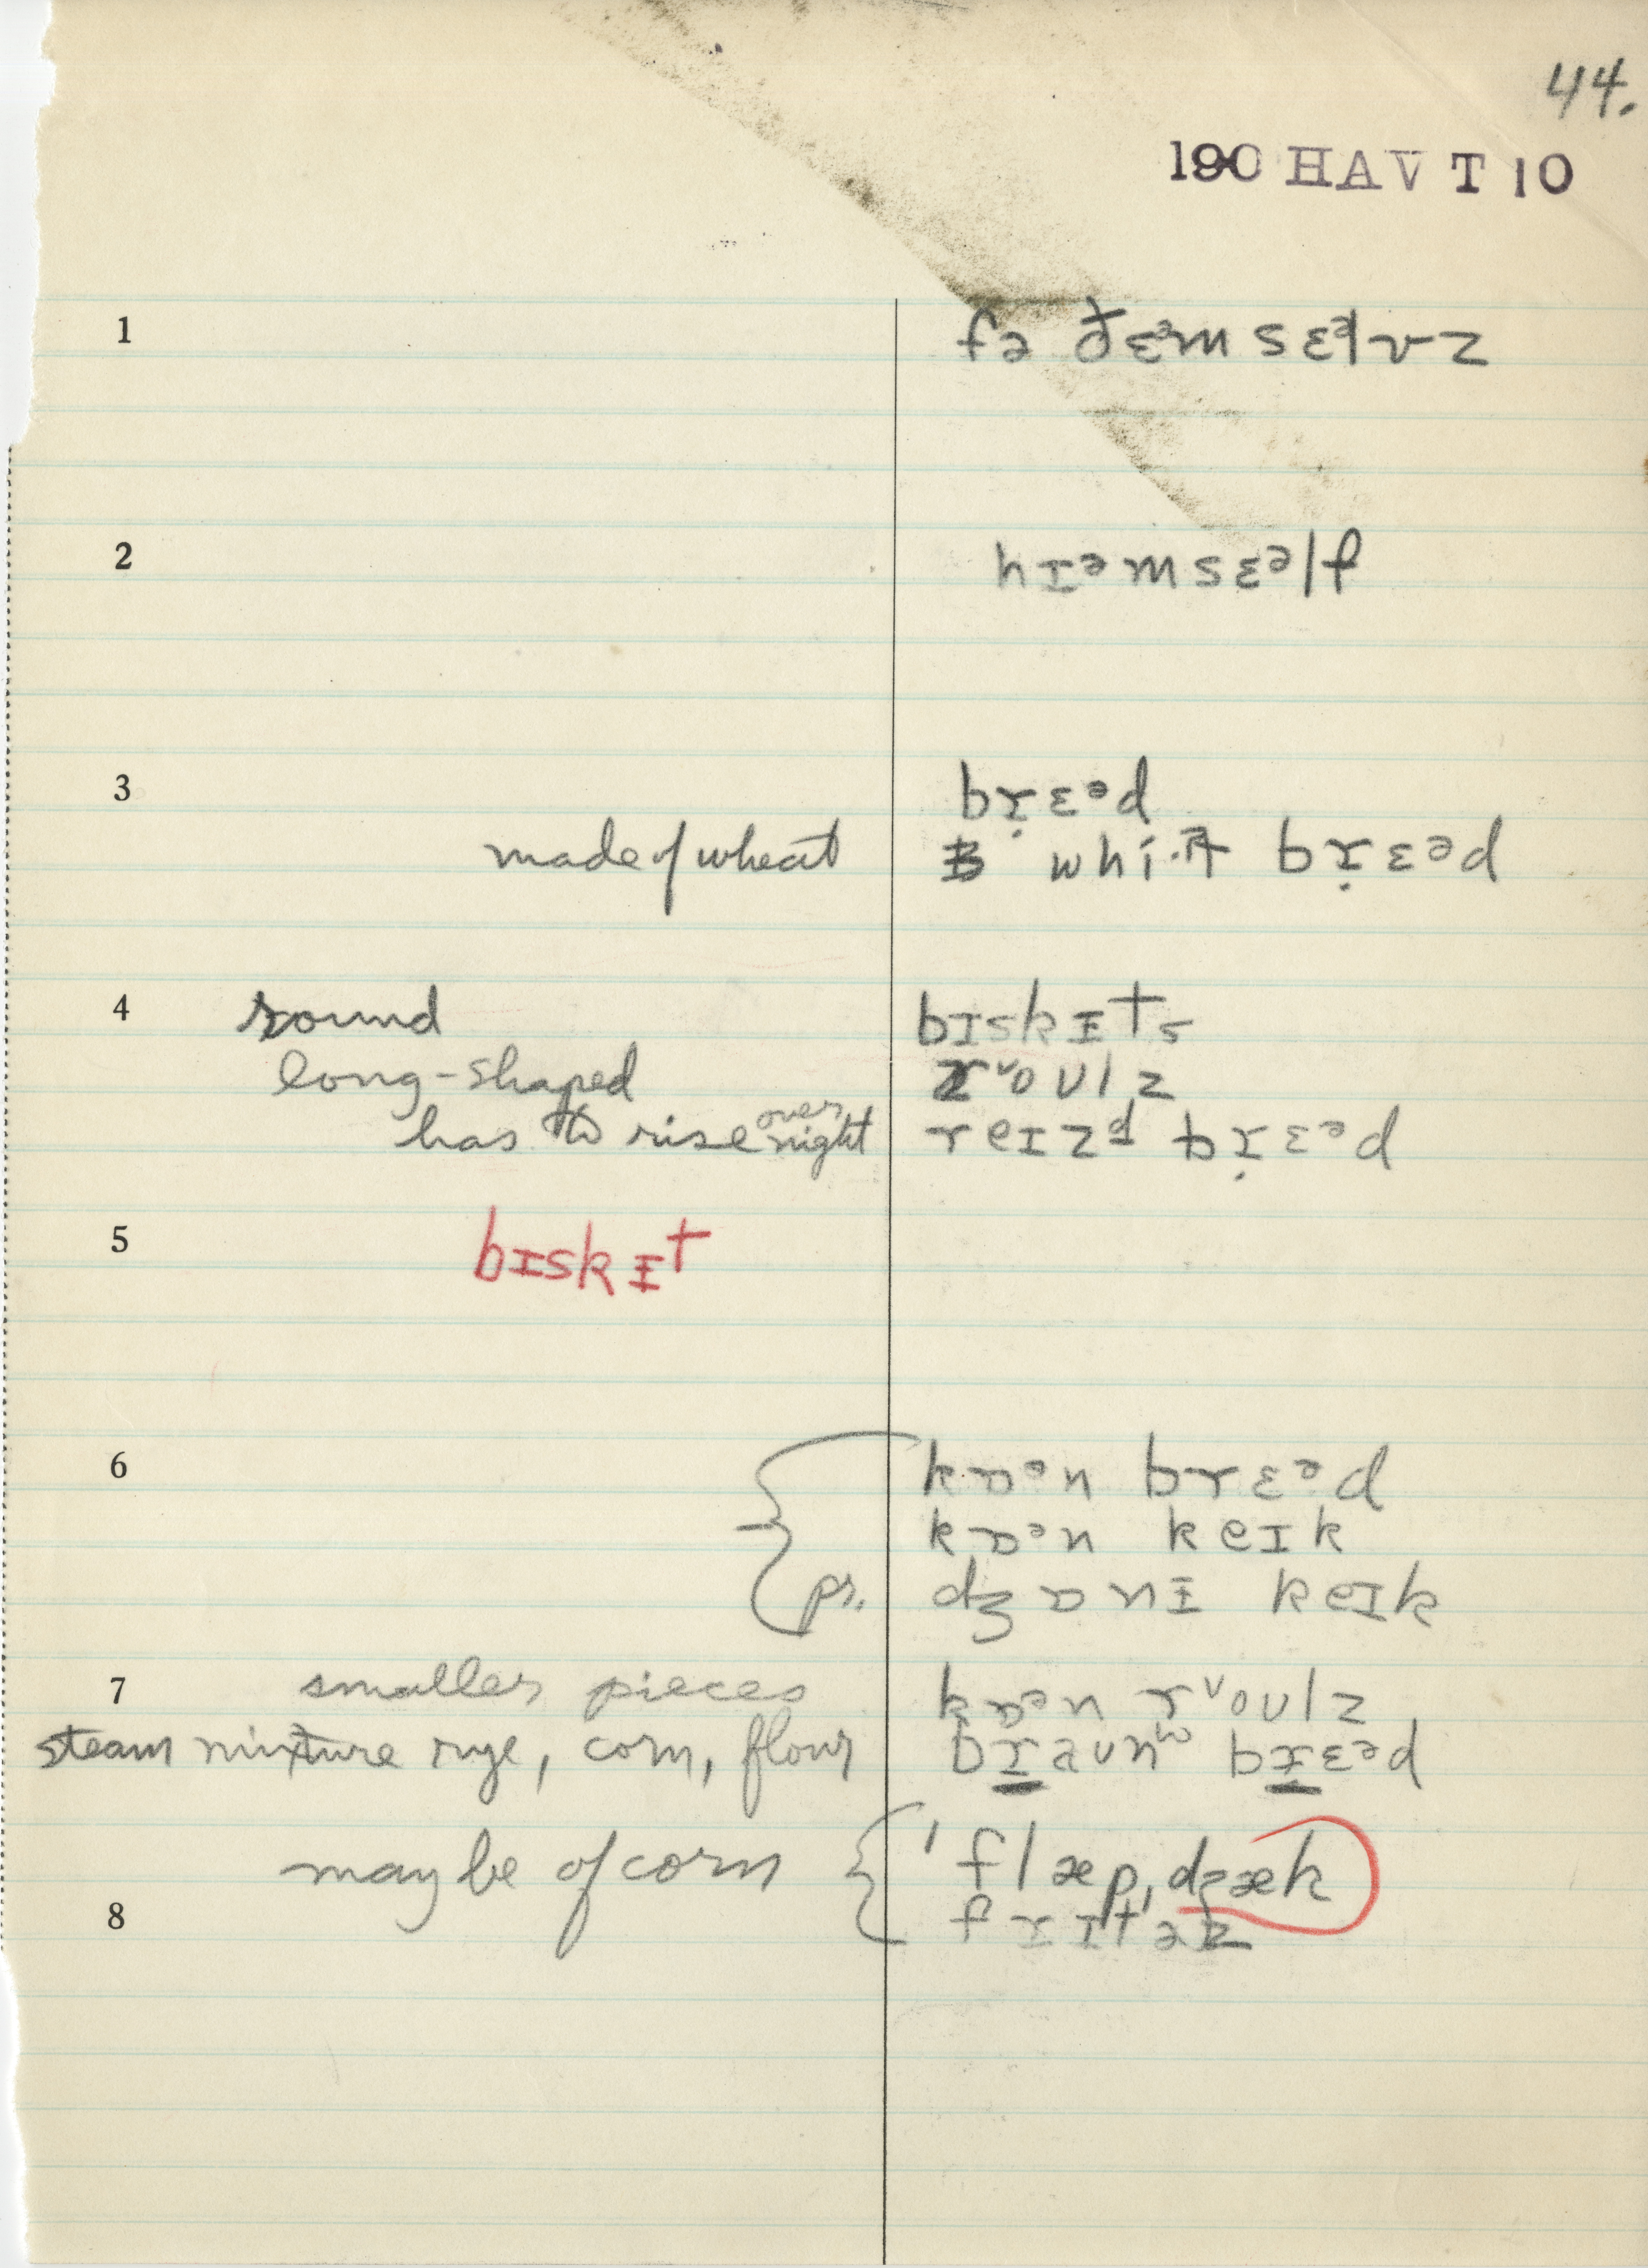 44.
190 HAV T 10
1 fə ðɛᵊmsɛᵊlvz
2 hɪᵊmsɛᵊlf
3 brɛᵊd
made of wheat brɛᵊd
4 round bɪskɪts
long-shaped rᵛoʊlz
has to rise over night reɪzd brɛᵊd
5 bɪskɪt
6 kɒᵊn brɛᵊd
kɒᵊn keɪk
pr. dʒɒnɪ keɪk
7 smaller pieces kɒᵊn rᵛoʊlz
steam mixture rye, corn, flour braʊn brɛᵊd
may be of corn ˈflæpˌdʒæk
8 frɪtəz